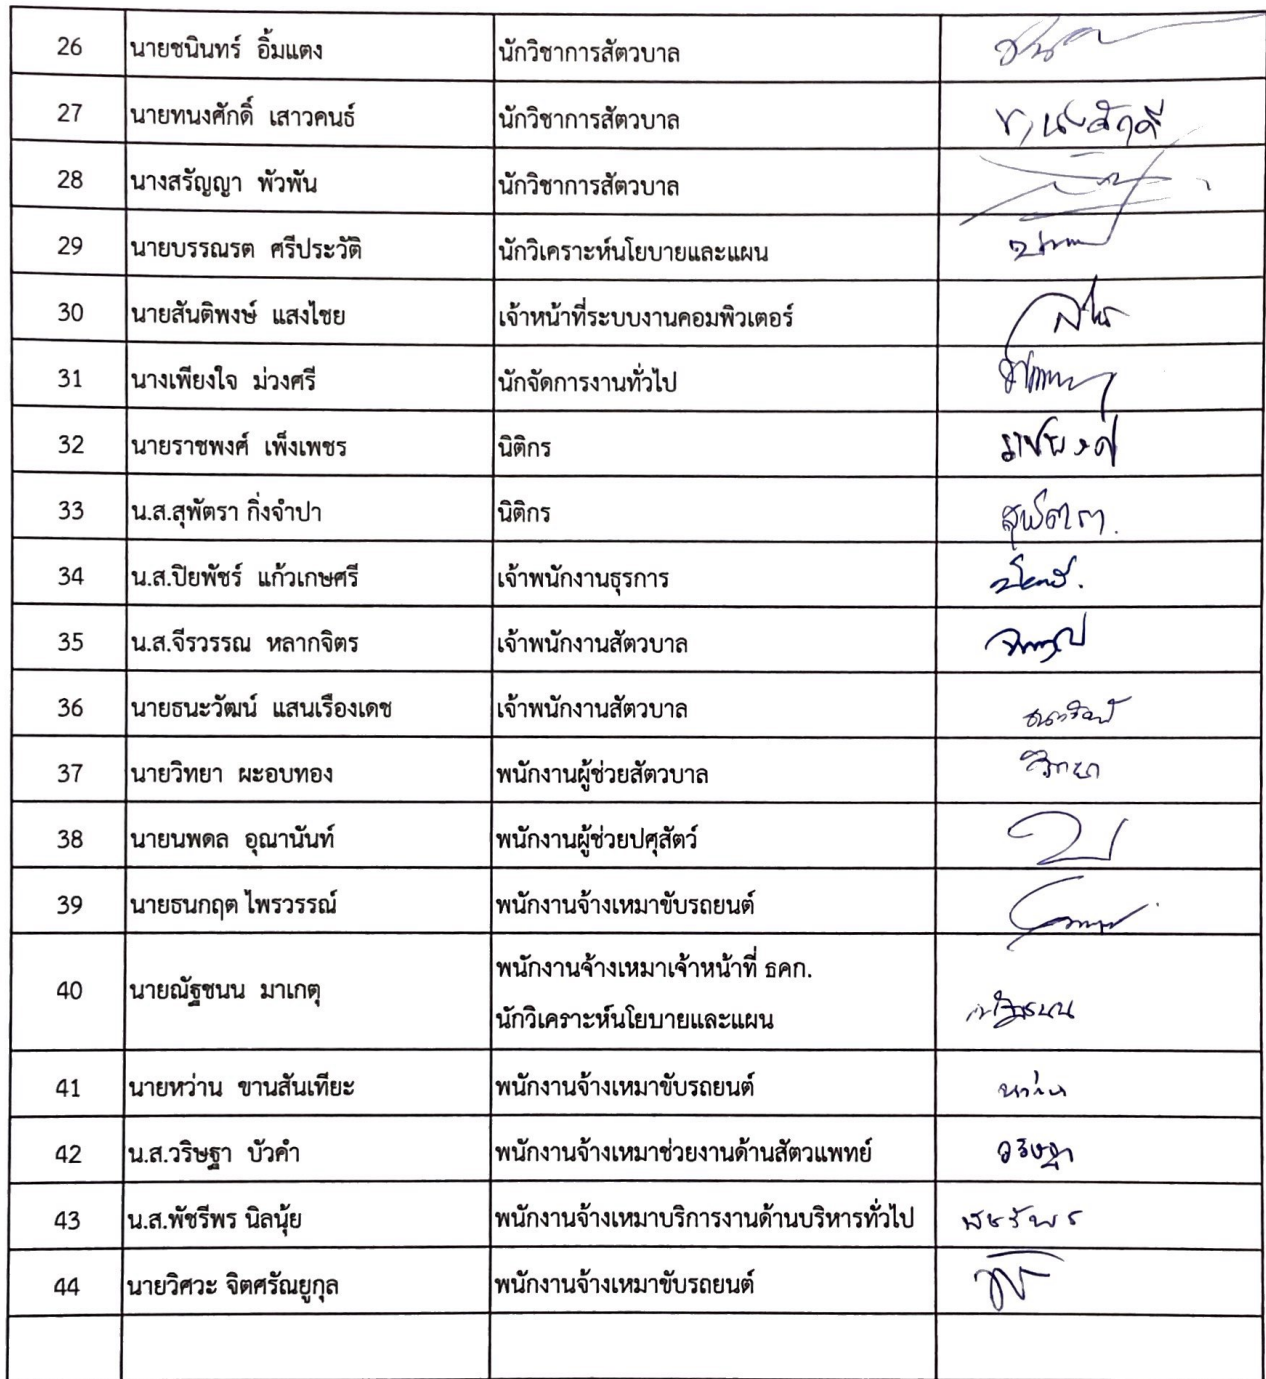 26 นายชนินทร์ อิ้มแตง นักวิชาการสัตวบาล
27 นายทนงศักดิ์ เสาวคนธ์ นักวิชาการสัตวบาล ทนงศักดิ์
28 นางสรัญญา พัวพัน นักวิชาการสัตวบาล
29 นายบรรณรต ศรีประวัติ นักวิเคราะห์นโยบายและแผน
30 นายสันติพงษ์ แสงไชย เจ้าหน้าที่ระบบงานคอมพิวเตอร์
31 นางเพียงใจ ม่วงศรี นักจัดการงานทั่วไป
32 นายราชพงศ์ เพ็งเพชร นิติกร ราชพงศ์
33 น.ส.สุพัตรา กิ่งจำปา นิติกร สุพัตรา
34 น.ส.ปิยพัชร์ แก้วเกษศรี เจ้าพนักงานธุรการ
35 น.ส.จีรวรรณ หลากจิตร เจ้าพนักงานสัตวบาล
36 นายธนะวัฒน์ แสนเรืองเดช เจ้าพนักงานสัตวบาล
37 นายวิทยา ผะอบทอง พนักงานผู้ช่วยสัตวบาล วิทยา
38 นายนพดล อุณานันท์ พนักงานผู้ช่วยปศุสัตว์
39 นายธนกฤต ไพรวรรณ์ พนักงานจ้างเหมาขับรถยนต์
พนักงานจ้างเหมาเจ้าหน้าที่ ธคก.
40 นายณัฐชนน มาเกตุ ณัฐชนน
นักวิเคราะห์นโยบายและแผน
41 นายหว่าน ขานสันเทียะ พนักงานจ้างเหมาขับรถยนต์ หว่าน
42 น.ส.วริษฐา บัวคำ พนักงานจ้างเหมาช่วยงานด้านสัตวแพทย์ วริษฐา
43 น.ส.พัชรีพร นิลนุ้ย พนักงานจ้างเหมาบริการงานด้านบริหารทั่วไป พัชรีพร
44 นายวิศวะ จิตศรัณยูกุล พนักงานจ้างเหมาขับรถยนต์